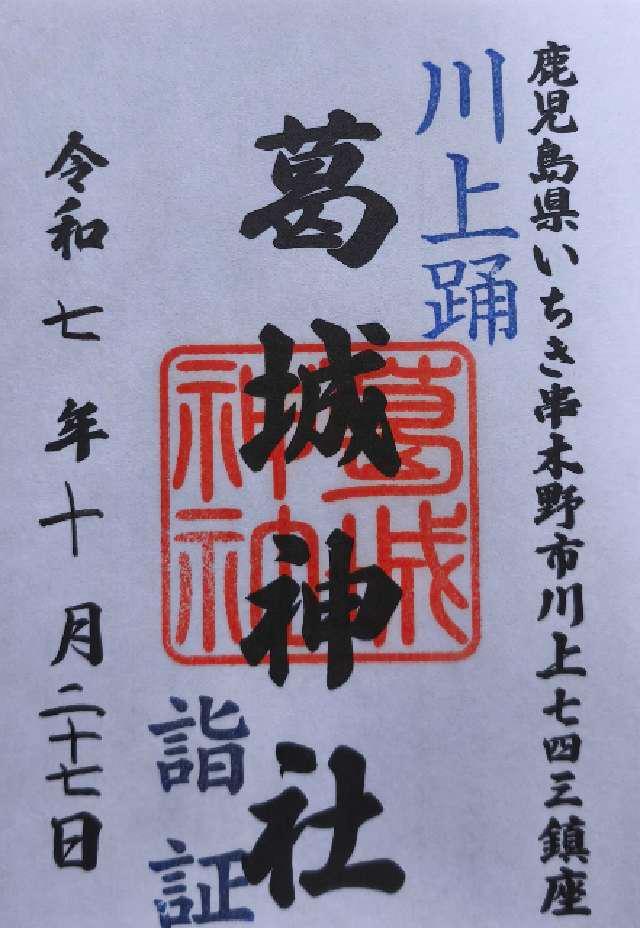 鹿児島県いちき串木野市川上七四三鎮座
川上踊
葛城神社
葛城
神社
詣証
令和七年十月二十七日